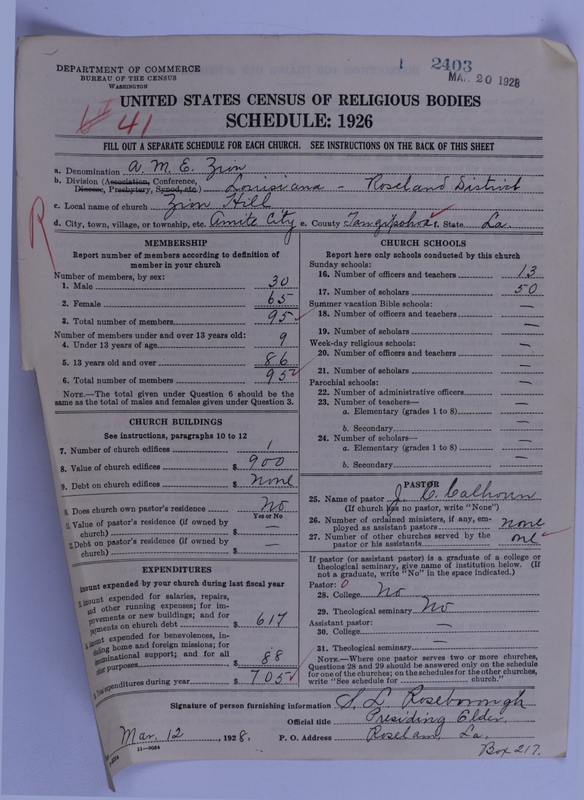 1 2403
MAR 20 1928
DEPARTMENT OF COMMERCE
BUREAU OF THE CENSUS
WASHINGTON
UNITED STATES CENSUS OF RELIGIOUS BODIES
41
SCHEDULE: 1926
FILL OUT A SEPARATE SCHEDULE FOR EACH CHURCH. SEE INSTRUCTIONS ON THE BACK OF THIS SHEET
a. Denomination A. M. E. Zion
b. Division (Association, Conference, Diocese, Presbytery, Synod, etc.) Louisiana - Roseland District
c. Local name of church Zion Hill
d. City, town, village, or township, etc. Amite City e. County Tangipahoa f. State La.
R
MEMBERSHIP
Report number of members according to definition of
member in your church
Number of members, by sex:
1. Male 30
2. Female 65
3. Total number of members 95
Number of members under and over 13 years old:
4. Under 13 years of age 9
5. 13 years old and over 86
6. Total number of members 95
NOTE.—The total given under Question 6 should be
same as the total of males and females given under Question 3.
CHURCH BUILDINGS
See instructions, paragraphs 10 to 12
7. Number of church edifices 1
8. Value of church edifices $ 900
9. Debt on church edifices $ none
Does church own pastor's residence No
Yes or No
Value of pastor's residence (if owned by
church) $ —
Debt on pastor's residence (if owned by
church) $ —
EXPENDITURES
Amount expended by your church during last fiscal year
Amount expended for salaries, repairs,
and other running expenses; for im-
provements or new buildings; and for
payments on church debt $ 617
Amount expended for benevolences, in-
cluding home and foreign missions; for
denominational support; and for all
other purposes $ 88
Total expenditures during year $ 705
CHURCH SCHOOLS
Report here only schools conducted by this church
Sunday schools:
16. Number of officers and teachers 13
17. Number of scholars 50
Summer vacation Bible schools:
18. Number of officers and teachers —
19. Number of scholars —
Week-day religious schools:
20. Number of officers and teachers —
21. Number of scholars —
Parochial schools:
22. Number of administrative officers —
23. Number of teachers—
a. Elementary (grades 1 to 8) —
b. Secondary —
24. Number of scholars—
a. Elementary (grades 1 to 8) —
b. Secondary —
PASTOR
25. Name of pastor J. C. Calhoun
(If church has no pastor, write "None")
26. Number of ordained ministers, if any, em-
ployed as assistant pastors none
27. Number of other churches served by the
pastor or his assistants one
If pastor (or assistant pastor) is a graduate of a college or
theological seminary, give name of institution below. (If
not a graduate, write "No" in the space indicated.)
Pastor: 0
28. College No
29. Theological seminary No
Assistant pastor:
30. College —
31. Theological seminary —
NOTE.—Where one pastor serves two or more churches,
Questions 28 and 29 should be answered only on the schedule
for one of the churches; on the schedules for the other churches,
write "See schedule for church."
Signature of person furnishing information S. L. Roseborough
Official title Presiding Elder
Mar. 12, 1928. P. O. Address Roseland, La.
11—9084
Box 217.